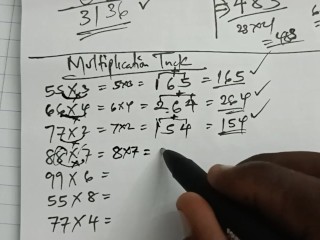 3136 ✓
483
28×4
488
Multiplication Trick
55×3 = 5×3 = 165 = 165 ✓
66×4 = 6×4 = 264 = 264 ✓
77×2 = 7×2 = 154 = 154 ✓
88×7 = 8×7 =
99×6 =
55×8 =
77×4 =